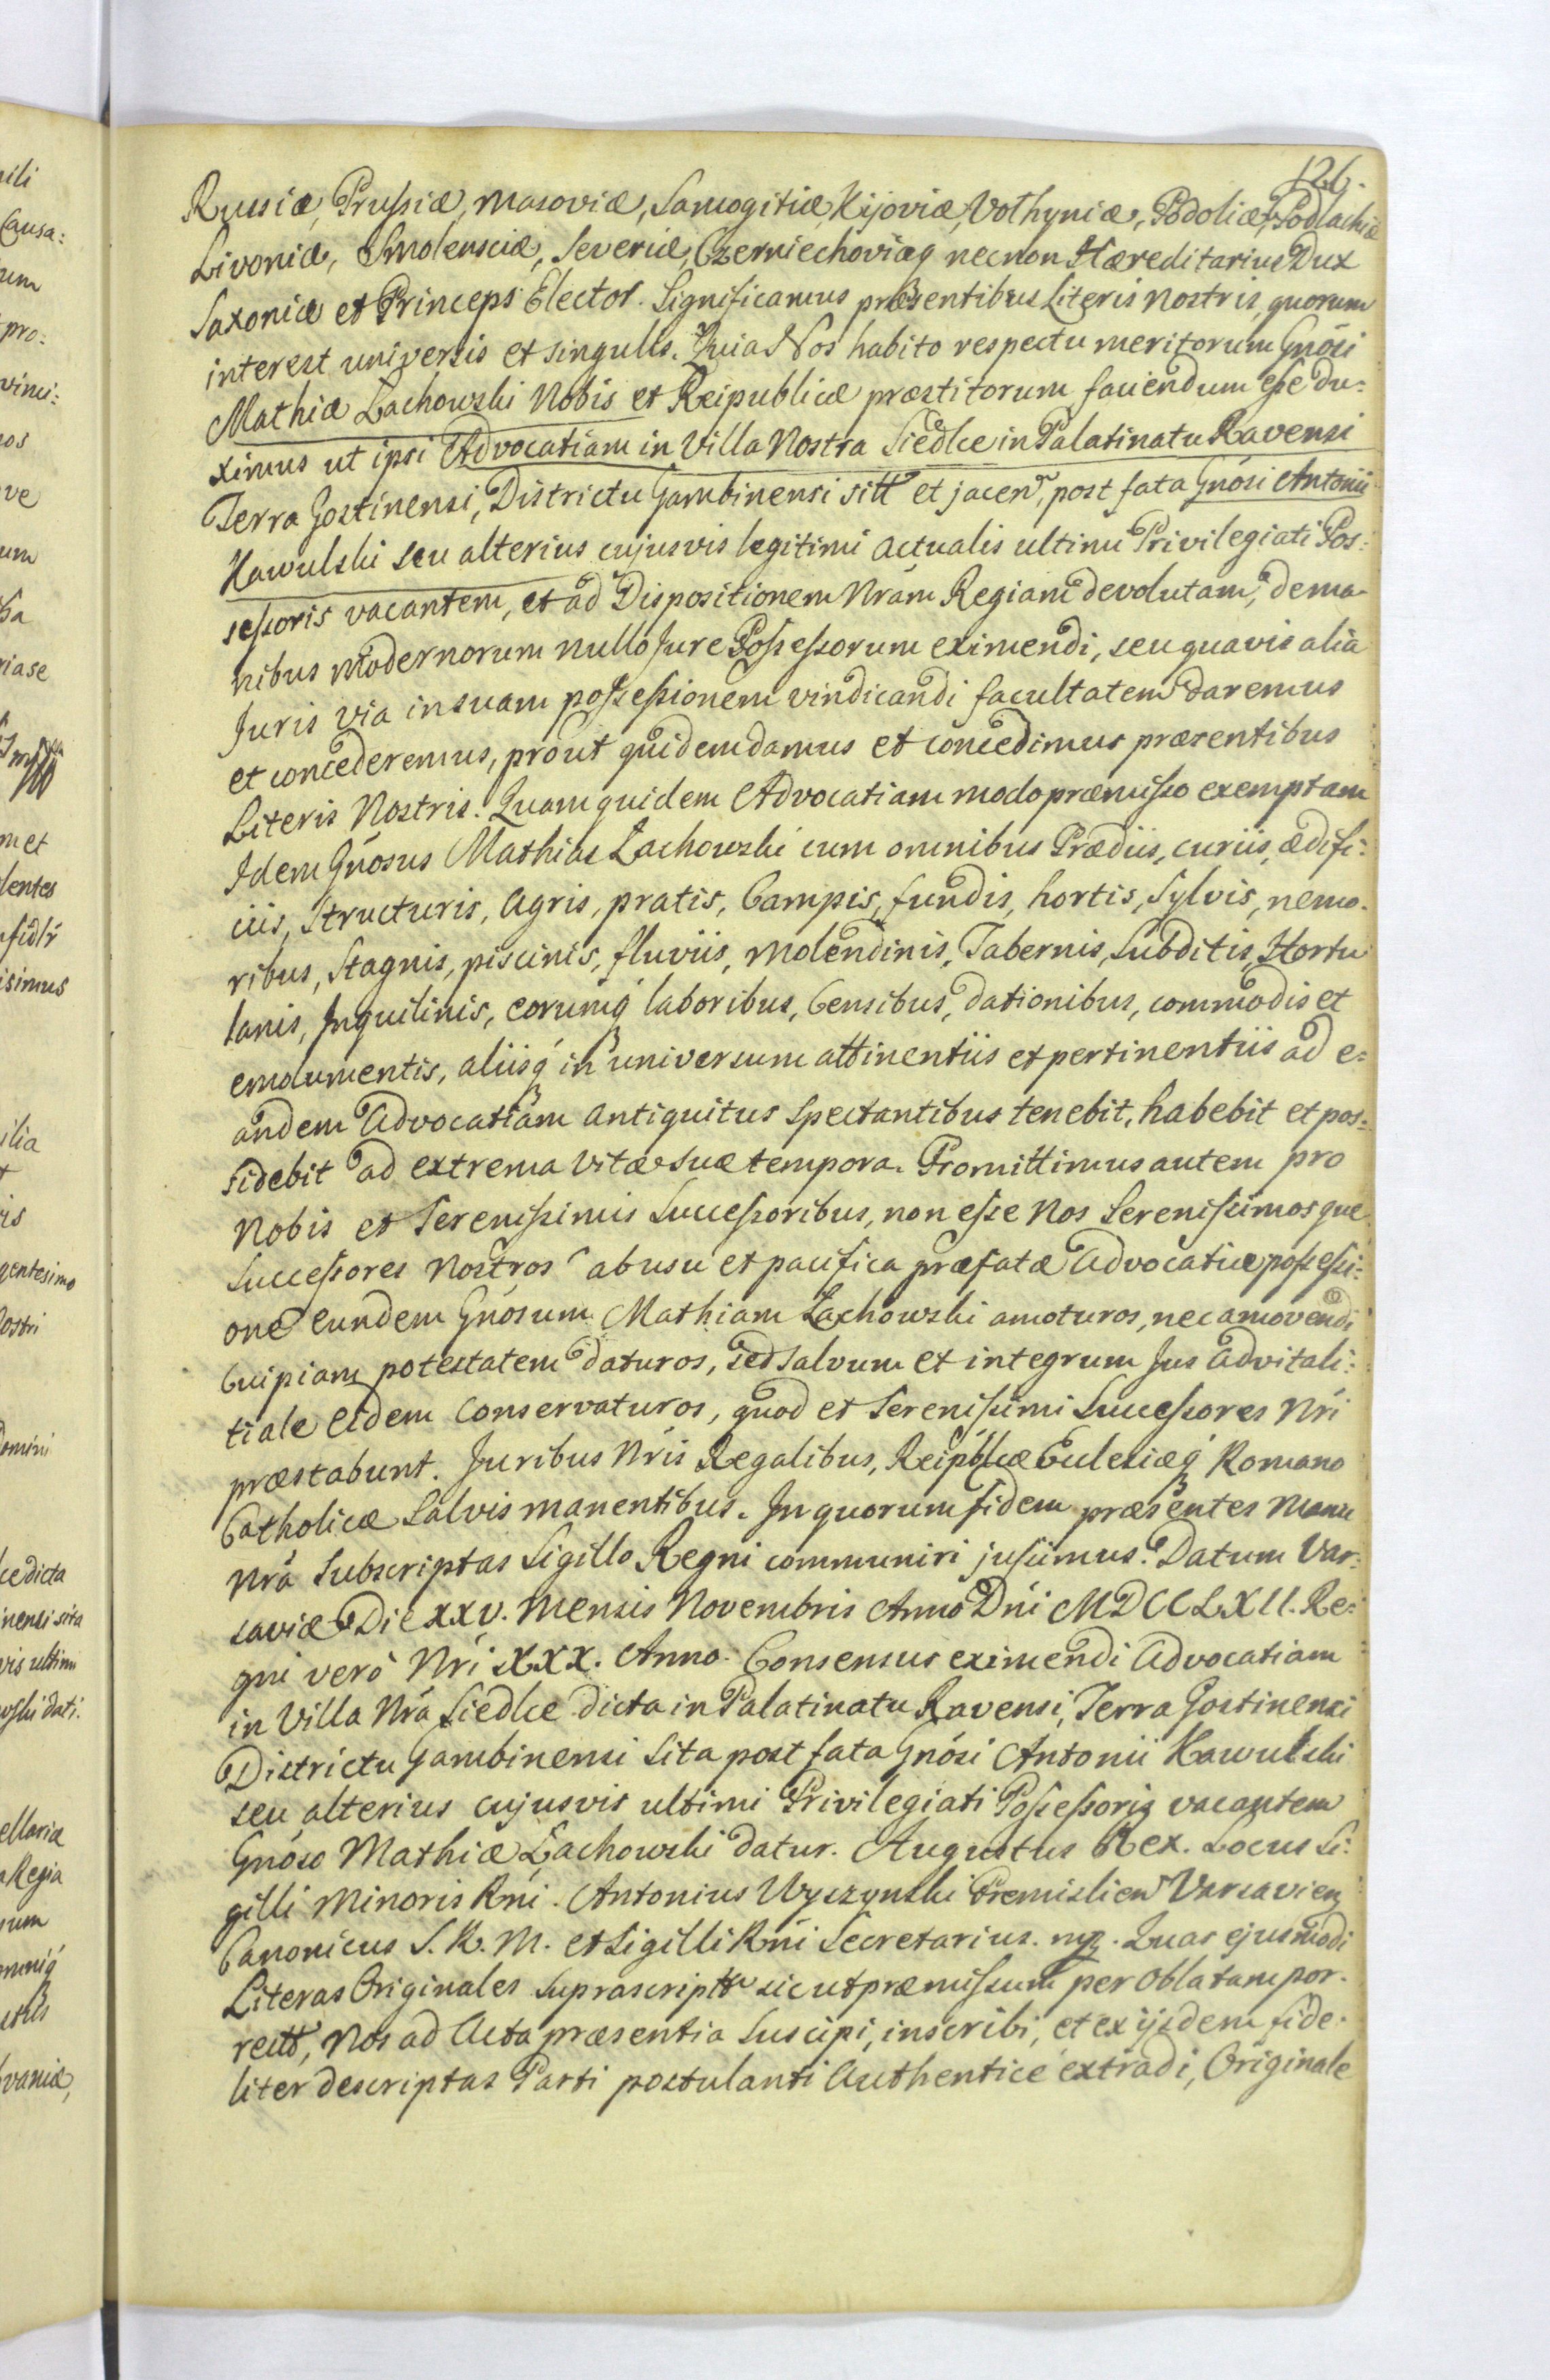 126.
Russiæ, Prussiæ, Masoviæ, Samogitiæ, Kijoviæ, Volhyniæ, Podoliæ, Podlachiæ
Livoniæ, Smolensciæ, Severiæ, Czerniechoviæq necnon Hæreditarius Dux
Saxoniæ et Princeps Elector. Significamus præsentibus Literis Nostris, quorum
interest universis et singulis. Quia Nos habito respectu meritorum Gnósi
Mathiæ Lachowski Nobis et Reipublicæ præstitorum faciendum esse du=
ximus ut ipsi Advocatiam in Villa Nostra Siedlce in Palatinatu Ravensi
Terra Gostinensi, Districtu Gambinensi sitt et jacen, post fata Gnósi Antonii
Kawulski seu alterius cujusvis legitimi actualis ultimi Privilegiati Pos=
sessoris vacantem, et ad Dispositionem Nrám Regiam devolutam, de ma=
nibus modernorum nullo Jure Possessorum eximendi, seu quavis alia
Juris via in suam possessionem vindicandi facultatem daremus
et concederemus, prout quidem damus et concedimus præsentibus
Literis Nostris. Quam quidem Advocatiam modo præmisso exemptam
Idem Gnósus Mathias Lachowski cum omnibus Prædiis, curiis, ædifi=
ciis, Structuris, Agris, pratis, Campis, fundis, hortis, Sylvis, nemo=
ribus, Stagnis, piscinis, fluviis, Molendinis, Tabernis, Subditis, Hortu
lanis, Inquilinis, eorumq́ laboribus, Censibus, dationibus, commodis et
emolumentis, aliisq́ in universum attinentiis et pertinentiis ad e=
andem Advocatiam antiquitus Spectantibus tenebit, habebit et pos=
sidebit ad extrema vitæ suæ tempora. Promittimus autem pro
Nobis et Serenissimis Successoribus, non esse Nos Serenissimosque
Successores Nostros ab usu et pacifica præfatæ Advocatiæ possessi=
one eundem Gnósum Mathiam Lachowski amoturos, nec amovendi
Cuipiam potestatem daturos, sed salvum et integrum Jus advitali=
tiale eidem Conservaturos, quod et Serenissimi Successores Nri
præstabunt. Juribus Nris Regalibus, Reipblicæ Ecclesiæq́ Romano
Catholicæ Salvis manentibus. In quorum fidem præsentes Manu
Nrá Subscriptas Sigillo Regni communiri jussimus. Datum Var=
saviæ Die XXV. Mensis Novembris Anno Dni MDCCLXII. Re=
gni vero Nri XXX. Anno. Consensus eximendi Advocatiam
in Villa Nrá Siedlce dicta in Palatinatu Ravensi, Terra Gostinensi
Districtu Gambinensi Sita post fata Gnósi Antonii Kawulski
seu alterius cujusvis ultimi Privilegiati Possessoris vacantem
Gnóso Mathiæ Lachowski datur. Augustus Rex. Locus Si=
gilli Minoris Rni. Antonius Wyszynski Premislien Varsavien
Canonicus S. R. M. et Sigilli Rni Secretarius. mp. Quas ejusmodi
Literas Originales Suprascriptt sicut præmissum per Oblatam por=
rectt, Nos ad Acta præsentia Suscipi, inscribi, et ex ijsdem fide=
liter descriptas Parti postulanti Authentice extradi, Originale